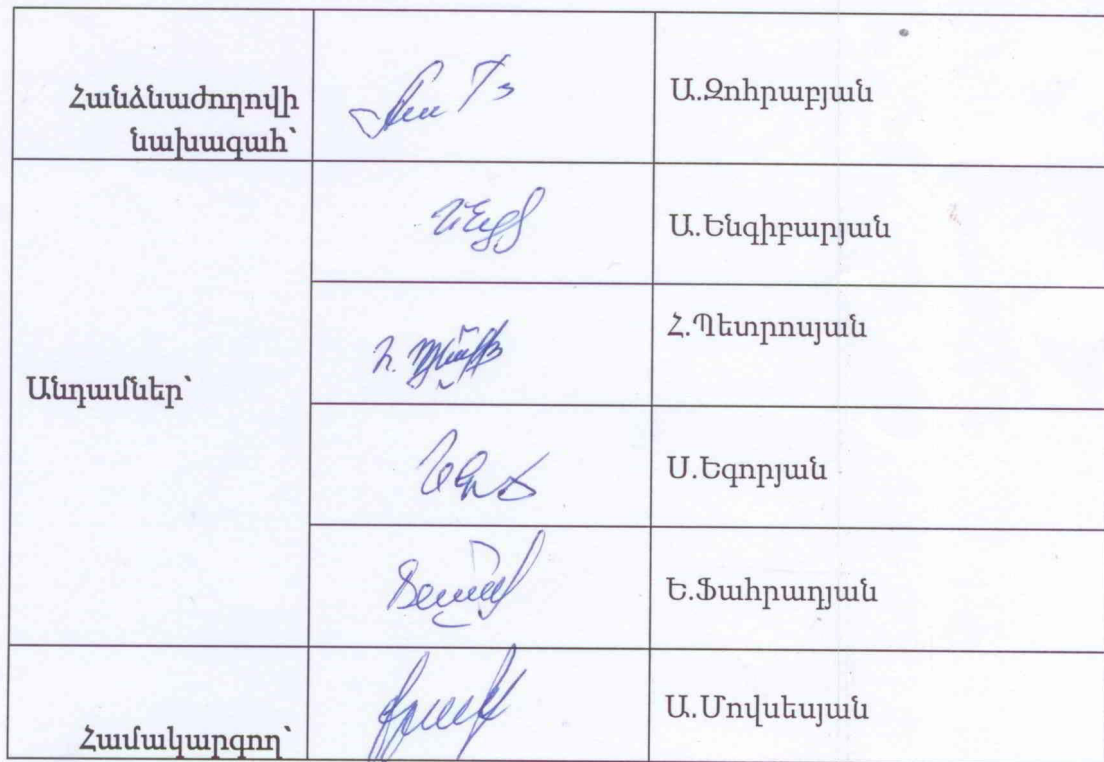 Հանձնաժողովի
նախագահ՝
Ա.Զոհրաբյան
Անդամներ՝
Ա.Ենգիբարյան
Հ.Պետրոսյան
Ս.Եգորյան
Ե.Ֆահրադյան
Համակարգող՝
Ա.Մովսեսյան